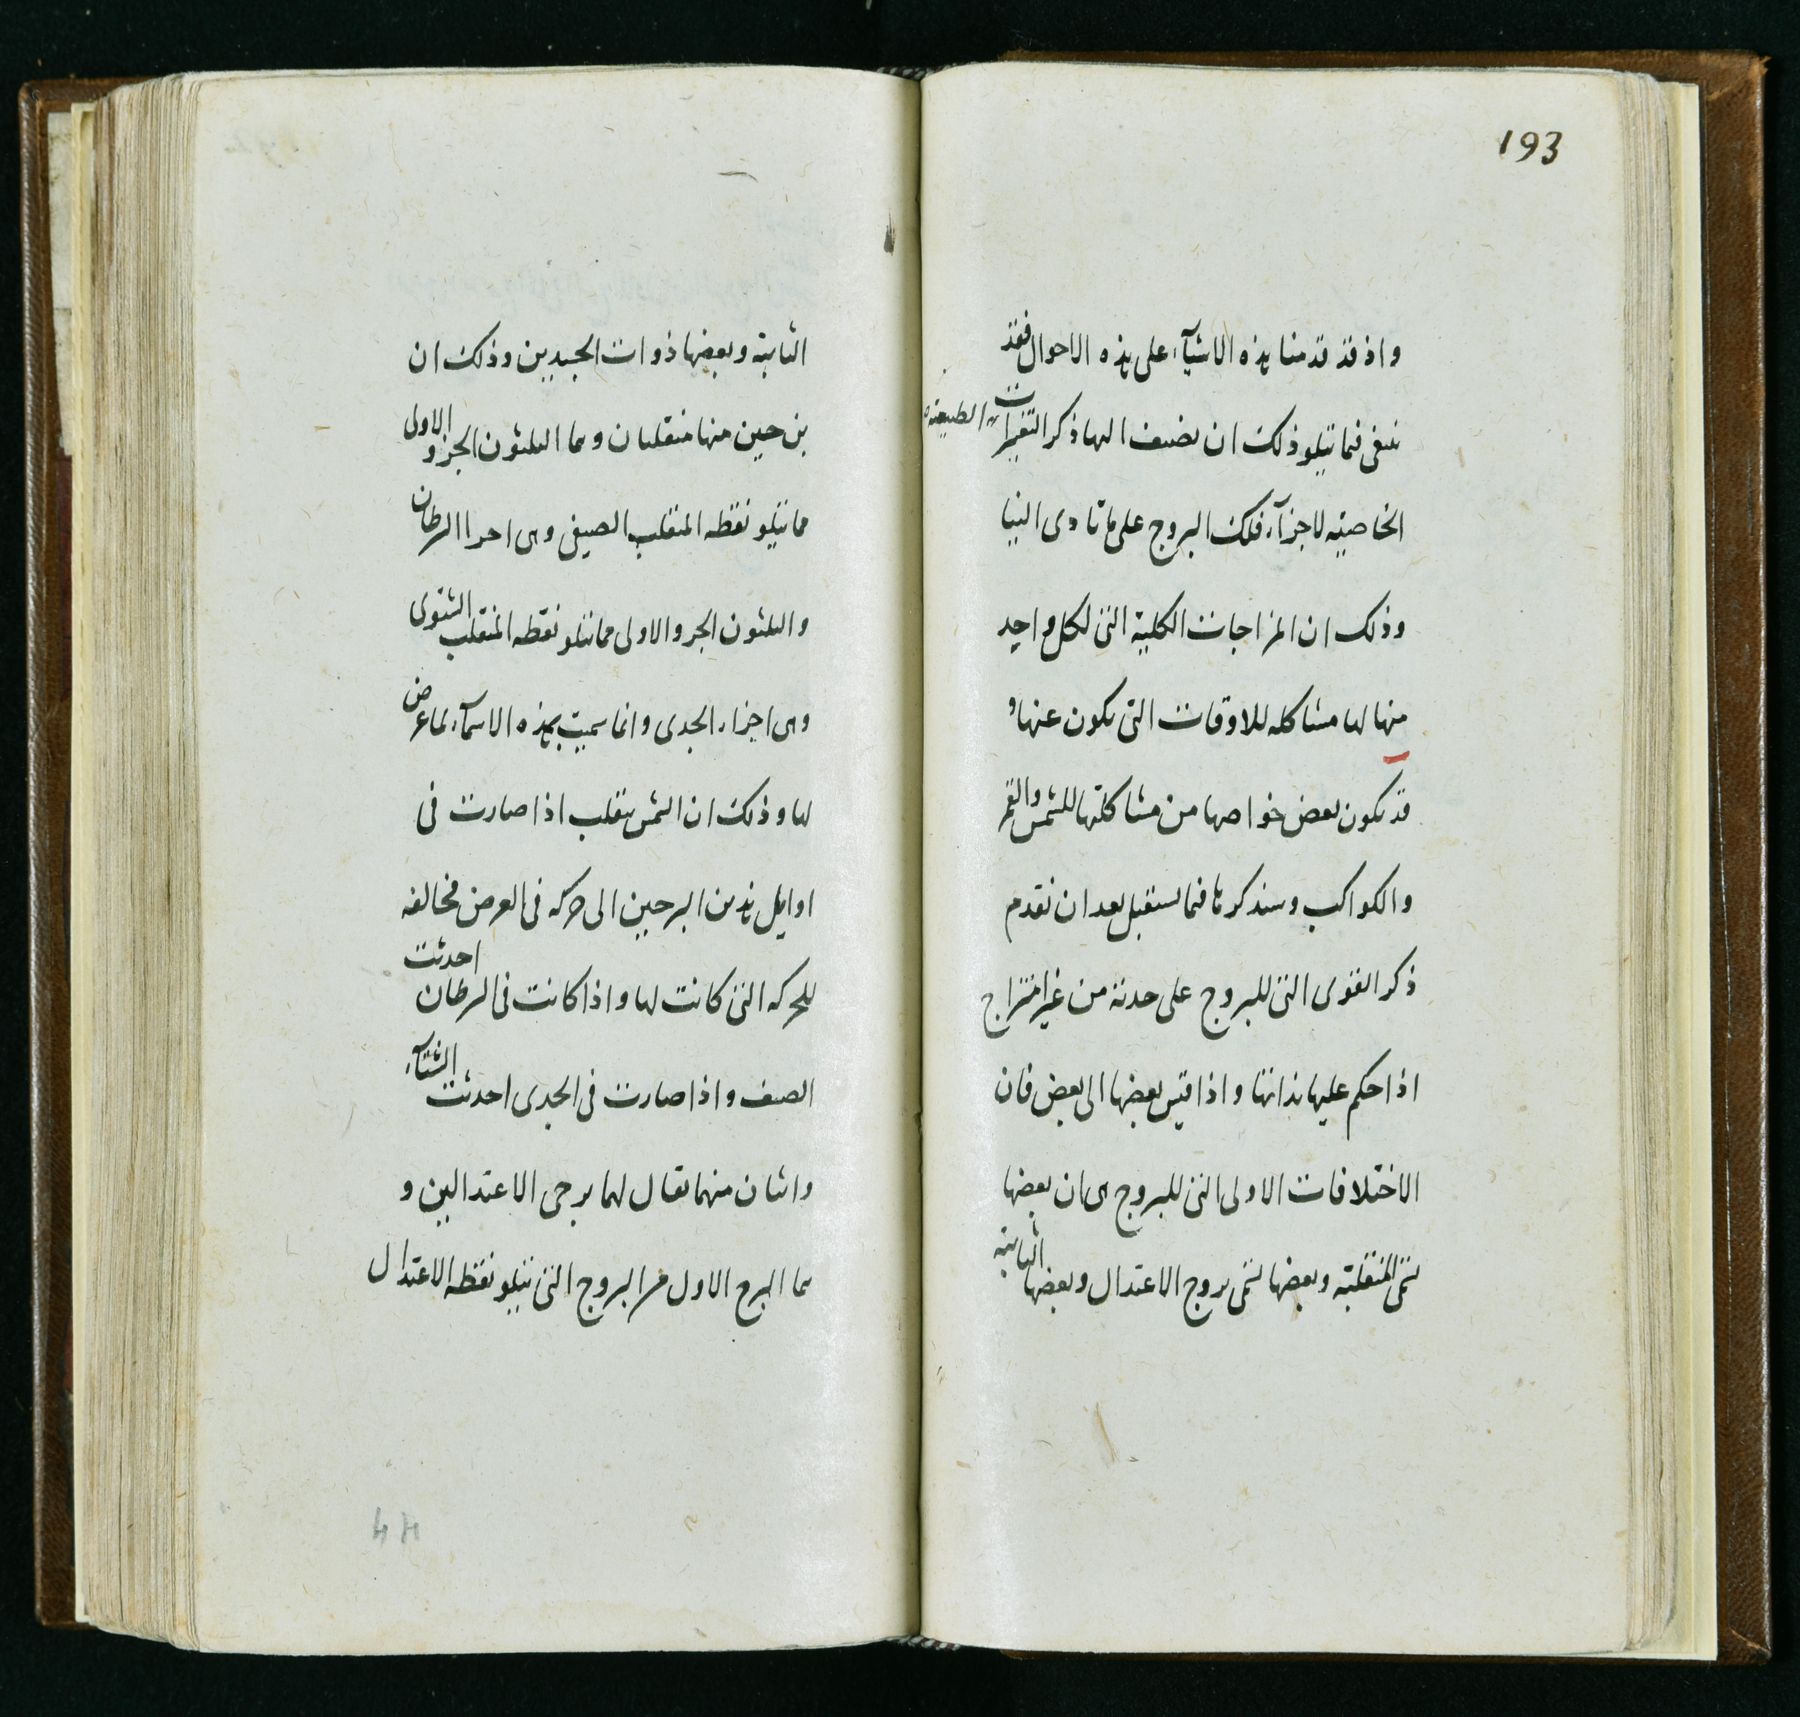 193
واذ قد قدمنا هذه الاشيآء على هذه الاحوال فقد
ينبغى فيما يتلو ذلك ان نضيف اليها ذكر التغيرات الطبيعيه
الخاصية لاجزآء فلك البروج على ما تادى الينا
وذلك ان المزاجات الكلية التى لكل واحد
منها لها مشاكله للاوقات التى يكون عنها و
قد يكون بعض خواصها من مشاكلتها للشمس والقمر
والكواكب وسنذكرها فيما يستقبل بعد ان نقدم
ذكر القوى التى للبروج على حدته من غير امتزاج
اذا حكم عليها بذاتها واذا قيس بعضها الى بعض فان
الاختلافات الاولى التى للبروج هى ان بعضها
تسمى المنقلبة وبعضها تسمى بروج الاعتدال وبعضها الثابته
الثابتة وبعضها ذوات الجسدين وذلك ان
برجين منها منقلبان وهما الثلثون الجزو الاول
مما يتلو نقطه المنقلب الصيفى وهى اجزا السرطان
والثلثون الجزو الاولى مما يتلو نقطه المنقلب الشتوى
وهى اجزاء الجدى وانما سميت بهذه الاسمآء لما عرض
لها وذلك ان الشمس ينقلب اذا صارت فى
اوايل هذين البرجين الى حركه فى العرض مخالفه
للحركه التى كانت لها واذا كانت فى السرطان احدثت
الصيف واذا صارت فى الجدى احدثت الشتآء
واثنان منهما يقال لهما برجى الاعتدالين و
هما البرج الاول من البروج التى يتلو نقطه الاعتدال